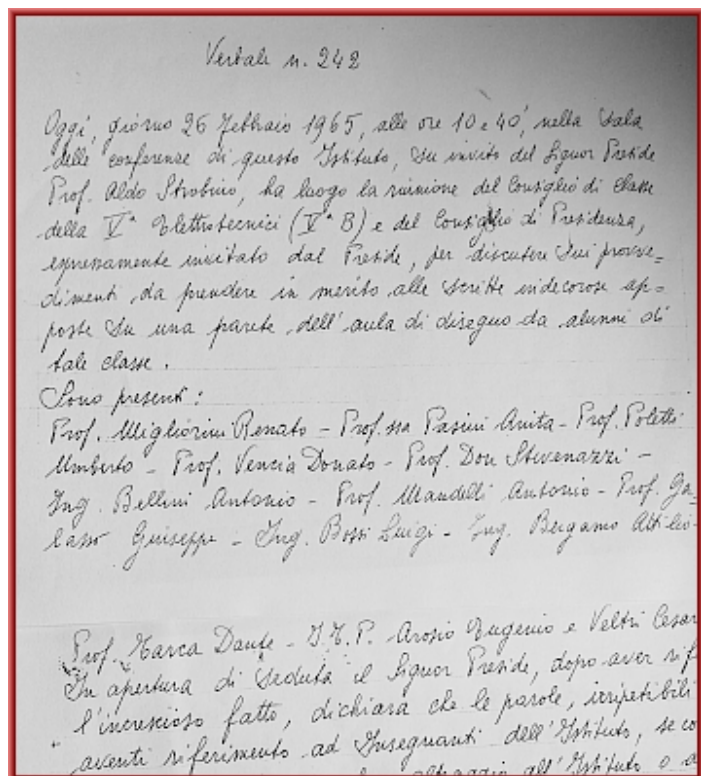 Verbale n. 242
Oggi, giorno 26 Febbraio 1965, alle ore 10 e 40', nella Sala
delle conferenze di questo Istituto, su invito del Signor Preside
Prof. Aldo Strobino, ha luogo la riunione del Consiglio di classe
della Vª Elettrotecnici (Vª B) e del Consiglio di Presidenza,
espressamente invitato dal Preside, per discutere sui provve=
dimenti da prendere in merito alle scritte indecorose ap=
poste su una parete dell'aula di disegno da alunni di
tale classe.
Sono presenti:
Prof. Migliorini Renato - Prof.ssa Pasini Anita - Prof. Poletti
Umberto - Prof. Vencia Donato - Prof. Don Stevenazzi -
Ing. Bellini Antonio - Prof. Mandelli Antonio - Prof. Ga=
lasso Giuseppe - Ing. Bossi Luigi - Ing. Bergamo Attilio -
Prof. Marca Dante - I.T.P. Arosio Eugenio e Veltri Cesar
In apertura di seduta il Signor Preside, dopo aver rif
l'increscioso fatto, dichiara che le parole, irripetibili
aventi riferimento ad Insegnanti dell'Istituto, se co
oltraggio all'Istituto o a